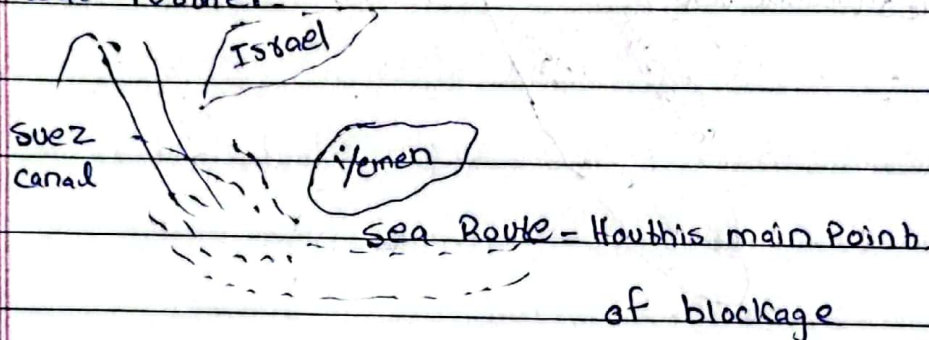 Israel
Suez
canal
Yemen
sea Route - Houthis main Point
of blockage